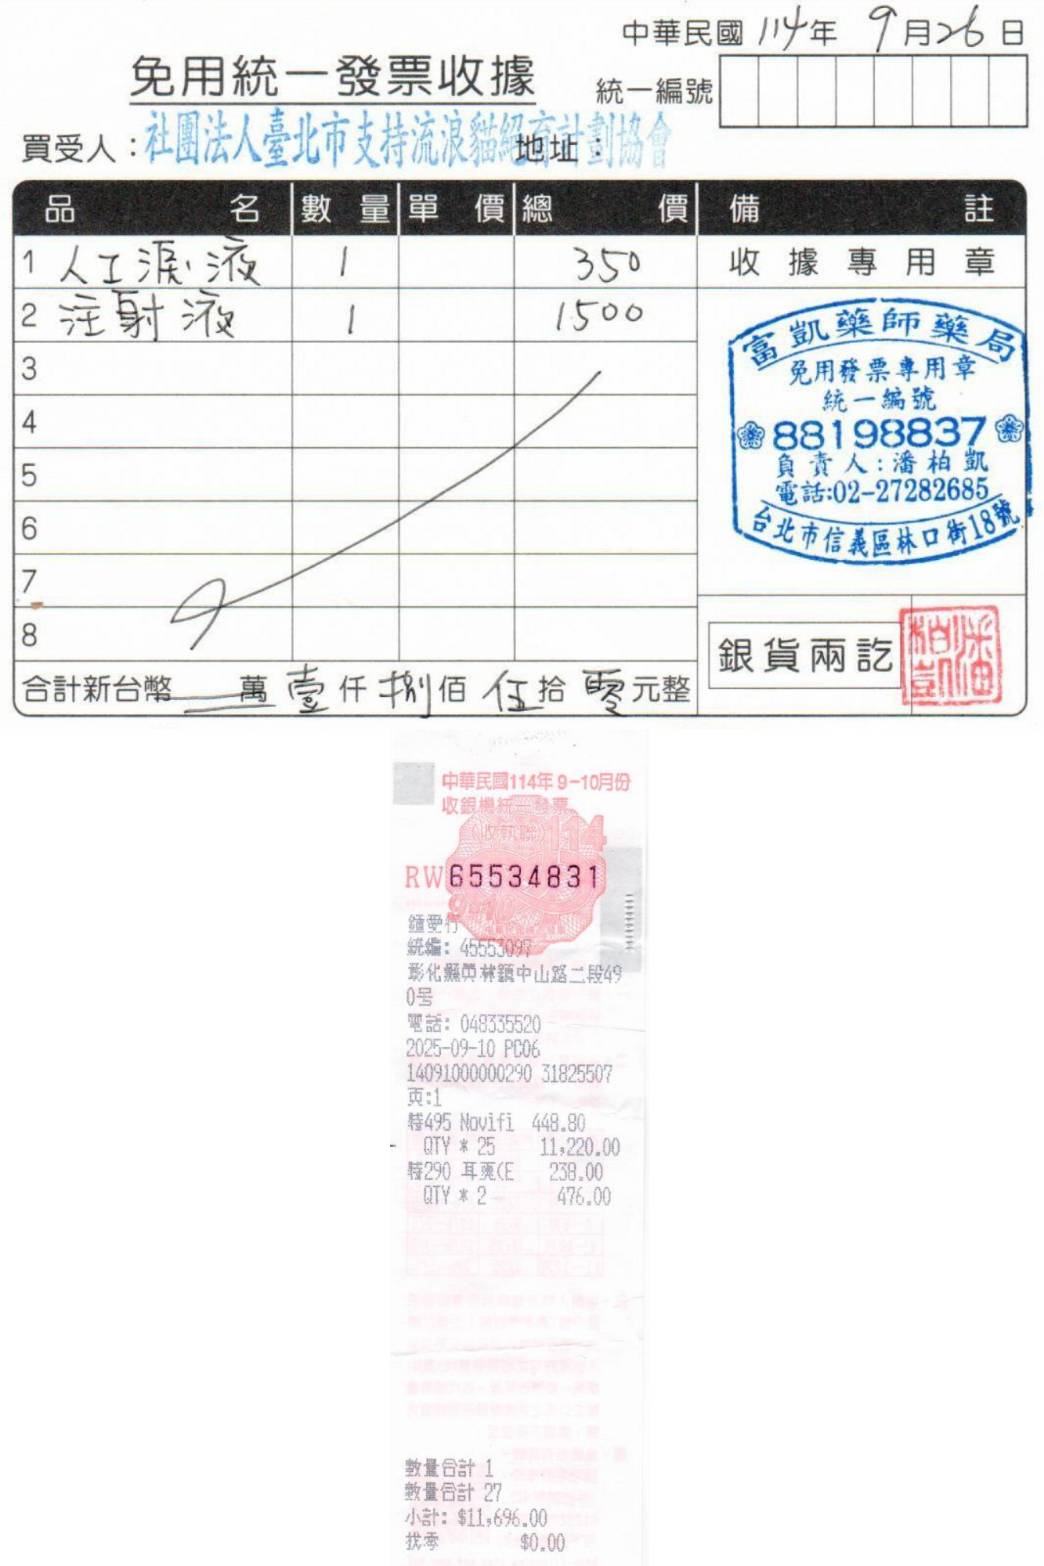 中華民國 114年 9月26日
免用統一發票收據
統一編號
買受人：社團法人臺北市支持流浪貓絕育計劃協會
地址：
品名 數量 單價 總價 備註
1 人工淚液 1 350 收據專用章
2 注射液 1 1500
富凱藥師藥局
免用發票專用章
統一編號
88198837
負責人：潘柏凱
電話:02-27282685
台北市信義區林口街18號
3
4
5
6
7
8
銀貨兩訖
潘柏凱
合計新台幣 萬壹仟捌佰伍拾零元整
中華民國114年 9-10月份
收銀機統一發票
(收執聯)
114
RW65534831
鍾愛行
統編: 45553097
彰化縣員林鎮中山路二段49
0号
電話: 048335520
2025-09-10 PC06
14091000000290 31825507
頁:1
特495 Novifi 448.80
QTY * 25 11,220.00
特290 耳爽(E 238.00
QTY * 2 476.00
數量合計 1
數量合計 27
小計: $11,696.00
找零 $0.00